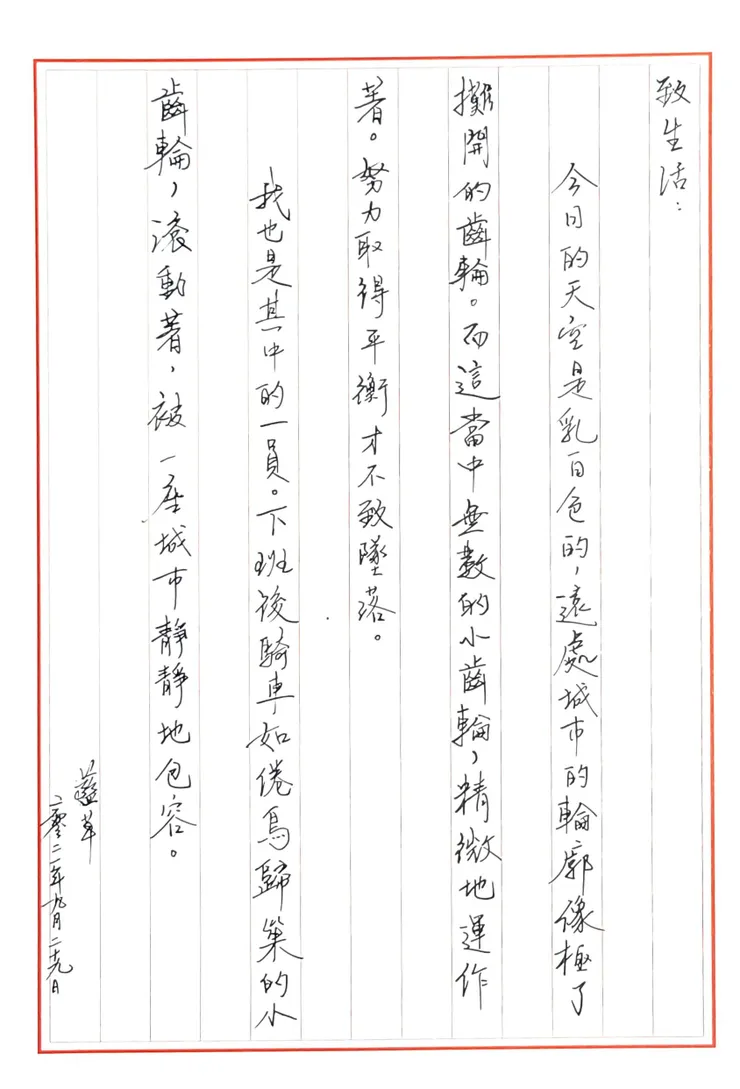 致生活：
今日的天空是乳白色的，遠處城市的輪廓像極了
攤開的齒輪。而這當中無數的小齒輪，精微地運作
著。努力取得平衡才不致墜落。
我也是其中的一員。下班後騎車如倦鳥歸巢的小
齒輪，滚動著，被一座城市靜靜地包容。
草
二零二一年九月二十九日